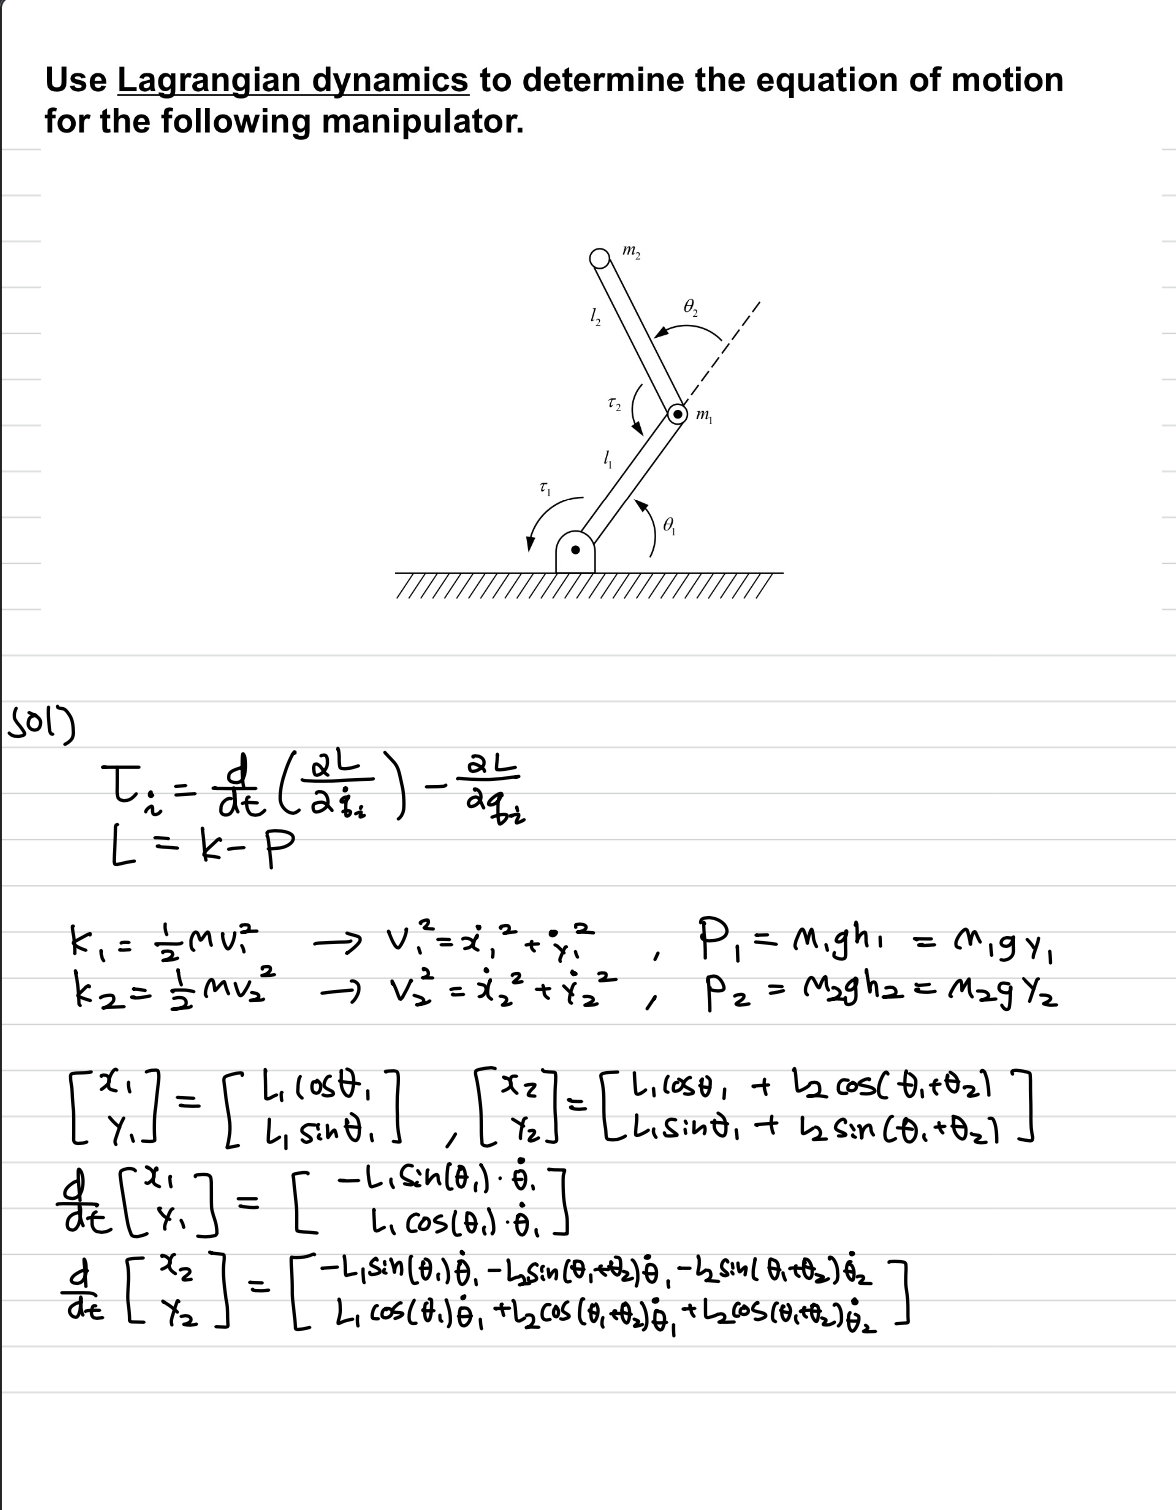 Use Lagrangian dynamics to determine the equation of motion
for the following manipulator.
m₂
θ₂
l₂
τ₂
m₁
l₁
τ₁
θ₁
sol)
τᵢ = d/dt (∂L/∂q̇ᵢ) - ∂L/∂qᵢ
L = k - P
k₁ = ½ m v₁² → v₁² = ẋ₁² + ẏ₁² , P₁ = m₁gh₁ = m₁gy₁
k₂ = ½ m v₂² → v₂² = ẋ₂² + ẏ₂² , P₂ = m₂gh₂ = m₂gy₂
[x₁ y₁] = [L₁cosθ₁ L₁sinθ₁] , [x₂ y₂] = [L₁cosθ₁ + L₂cos(θ₁+θ₂) L₁sinθ₁ + L₂sin(θ₁+θ₂)]
d/dt [x₁ y₁] = [-L₁sin(θ₁)·θ̇₁ L₁cos(θ₁)·θ̇₁]
d/dt [x₂ y₂] = [-L₁sin(θ₁)θ̇₁ - L₂sin(θ₁+θ₂)θ̇₁ - L₂sin(θ₁+θ₂)θ̇₂ L₁cos(θ₁)θ̇₁ + L₂cos(θ₁+θ₂)θ̇₁ + L₂cos(θ₁+θ₂)θ̇₂]